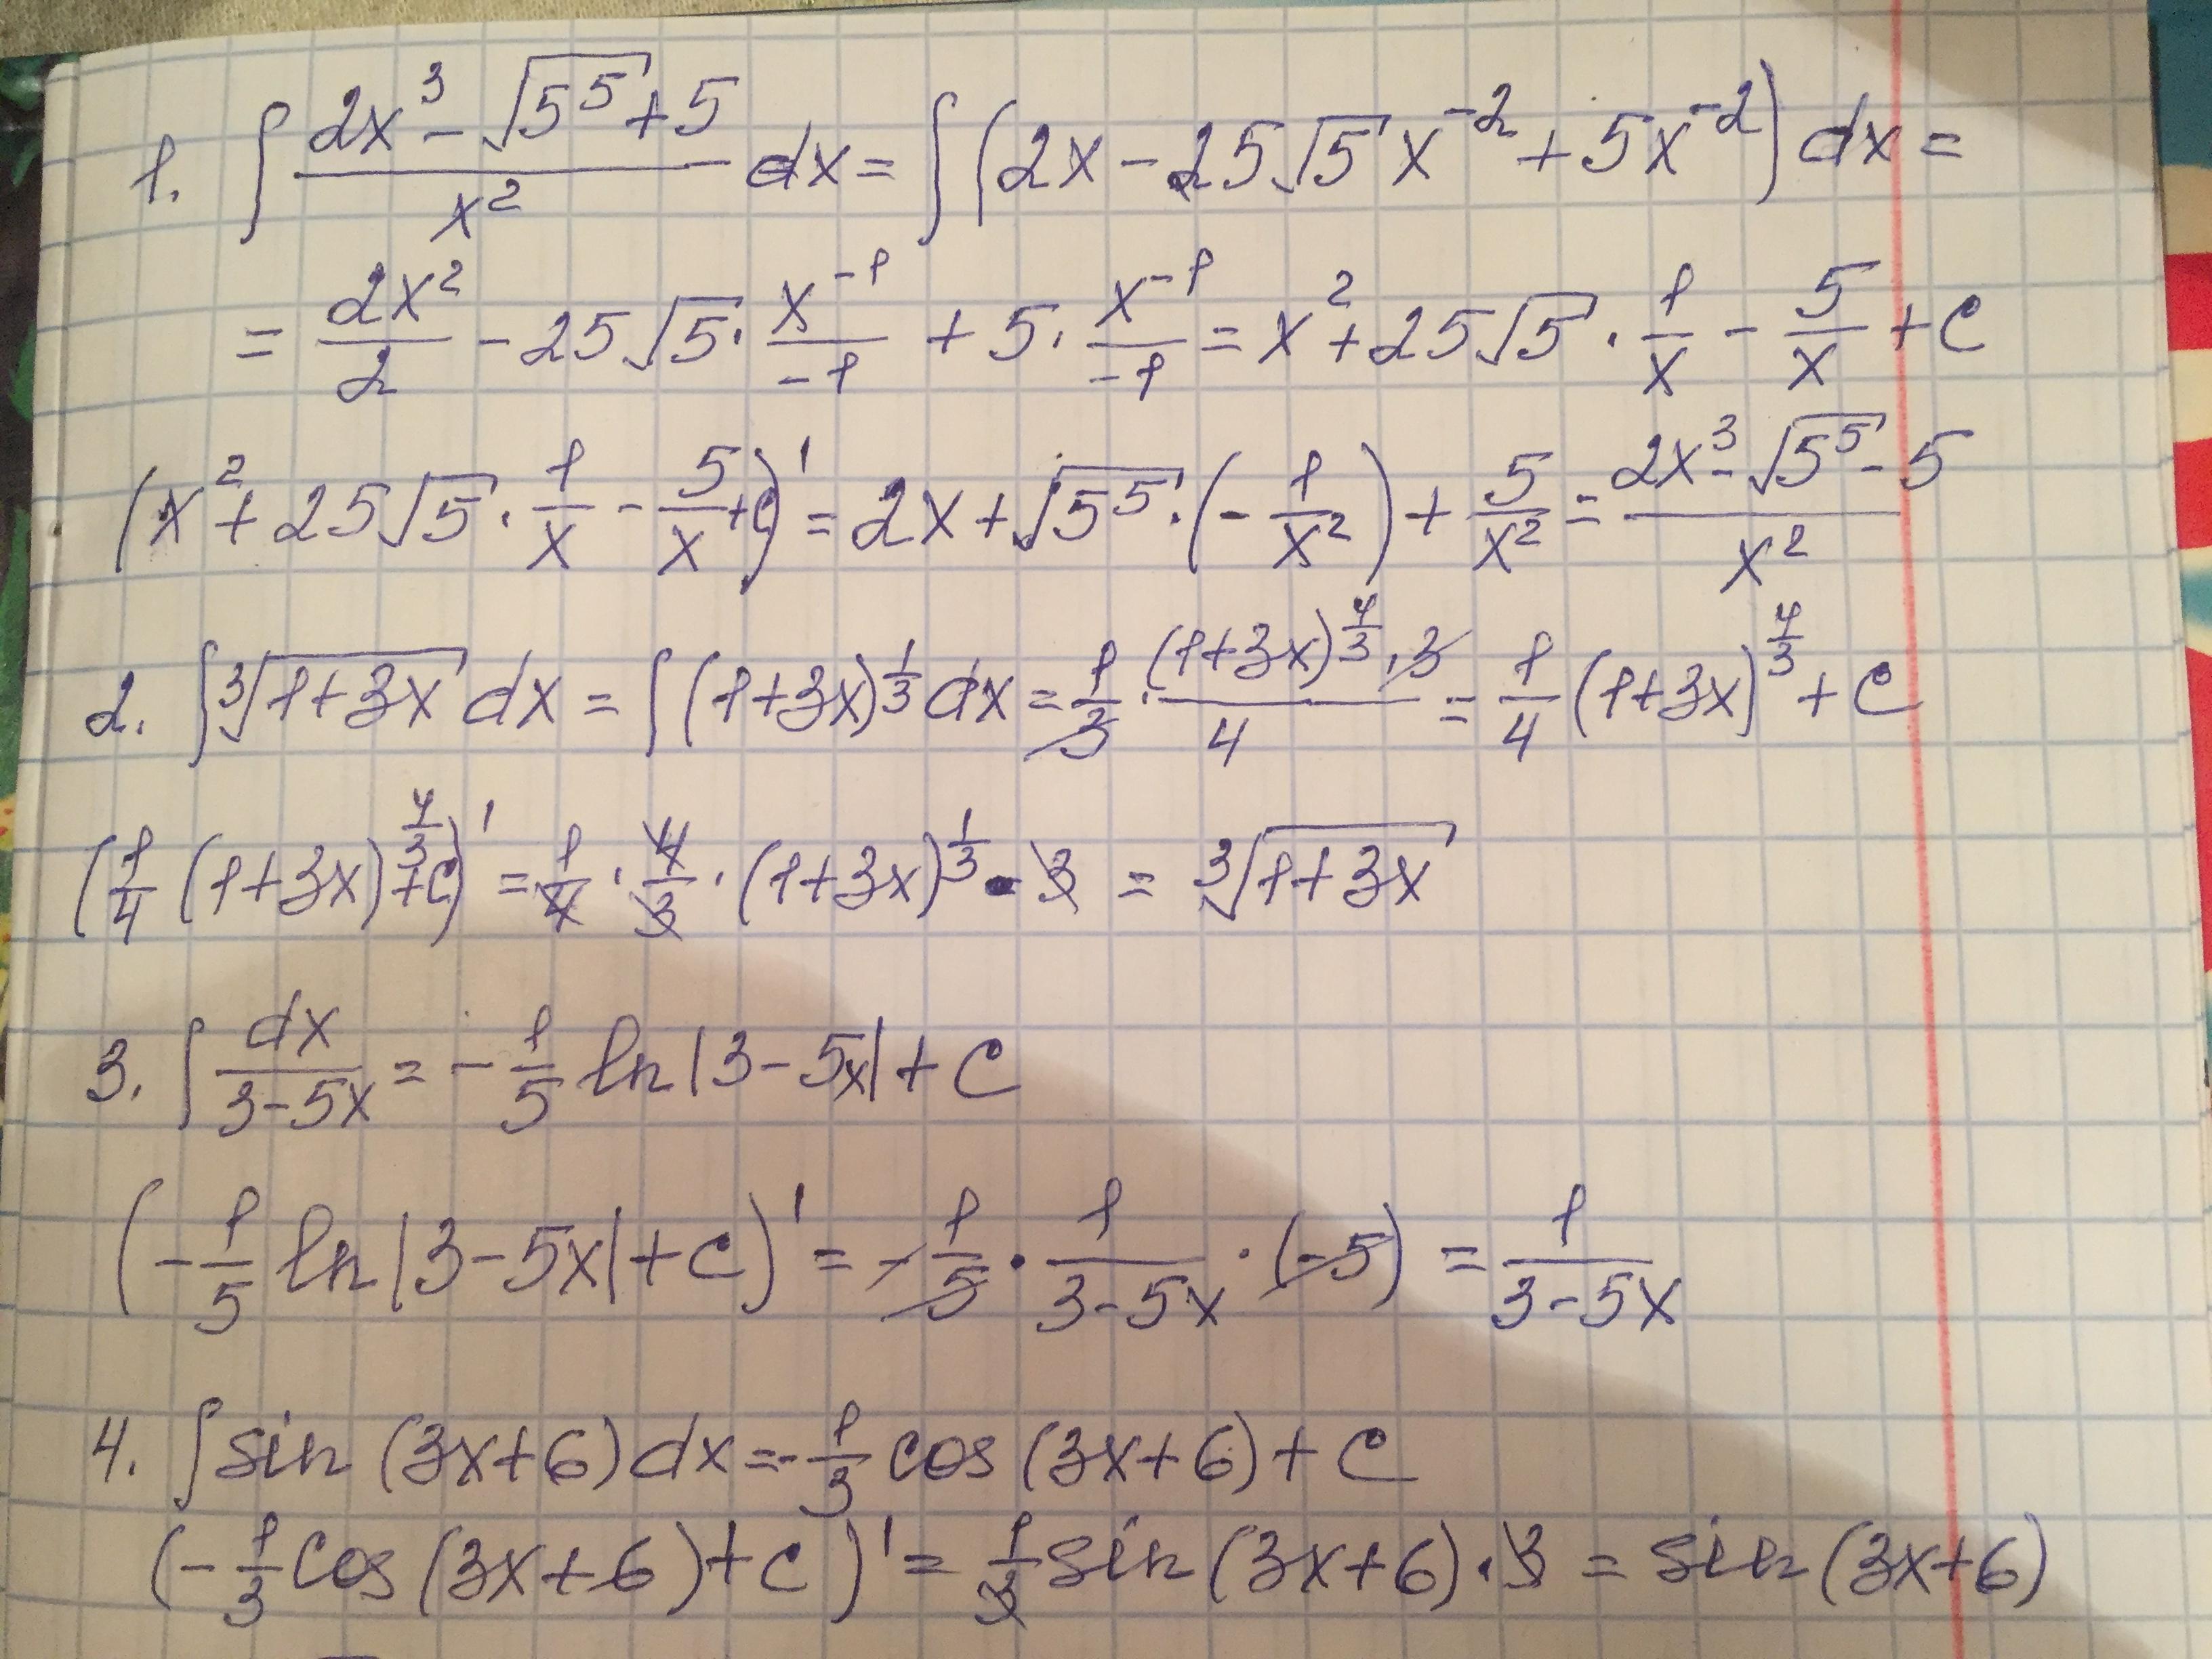 1. ∫ (2x³ - √(5⁵) + 5)/x² dx = ∫ (2x - 25√5 x⁻² + 5x⁻²) dx =
= 2x²/2 - 25√5 · x⁻¹/(-1) + 5 · x⁻¹/(-1) = x² + 25√5 · 1/x - 5/x + C
(x² + 25√5 · 1/x - 5/x + C)' = 2x + √(5⁵) · (-1/x²) + 5/x² = (2x³ - √(5⁵) - 5)/x²
2. ∫ ³√(1+3x) dx = ∫ (1+3x)^(1/3) dx = 1/3 · ((1+3x)^(4/3) · 3)/4 = 1/4 (1+3x)^(4/3) + C
(1/4 (1+3x)^(4/3) + C)' = 1/4 · 4/3 · (1+3x)^(1/3) · 3 = ³√(1+3x)
3. ∫ dx/(3-5x) = -1/5 ln|3-5x| + C
(-1/5 ln|3-5x| + C)' = -1/5 · 1/(3-5x) · (-5) = 1/(3-5x)
4. ∫ sin (3x+6) dx = -1/3 cos (3x+6) + C
(-1/3 cos (3x+6) + C)' = 1/3 sin (3x+6) · 3 = sin (3x+6)